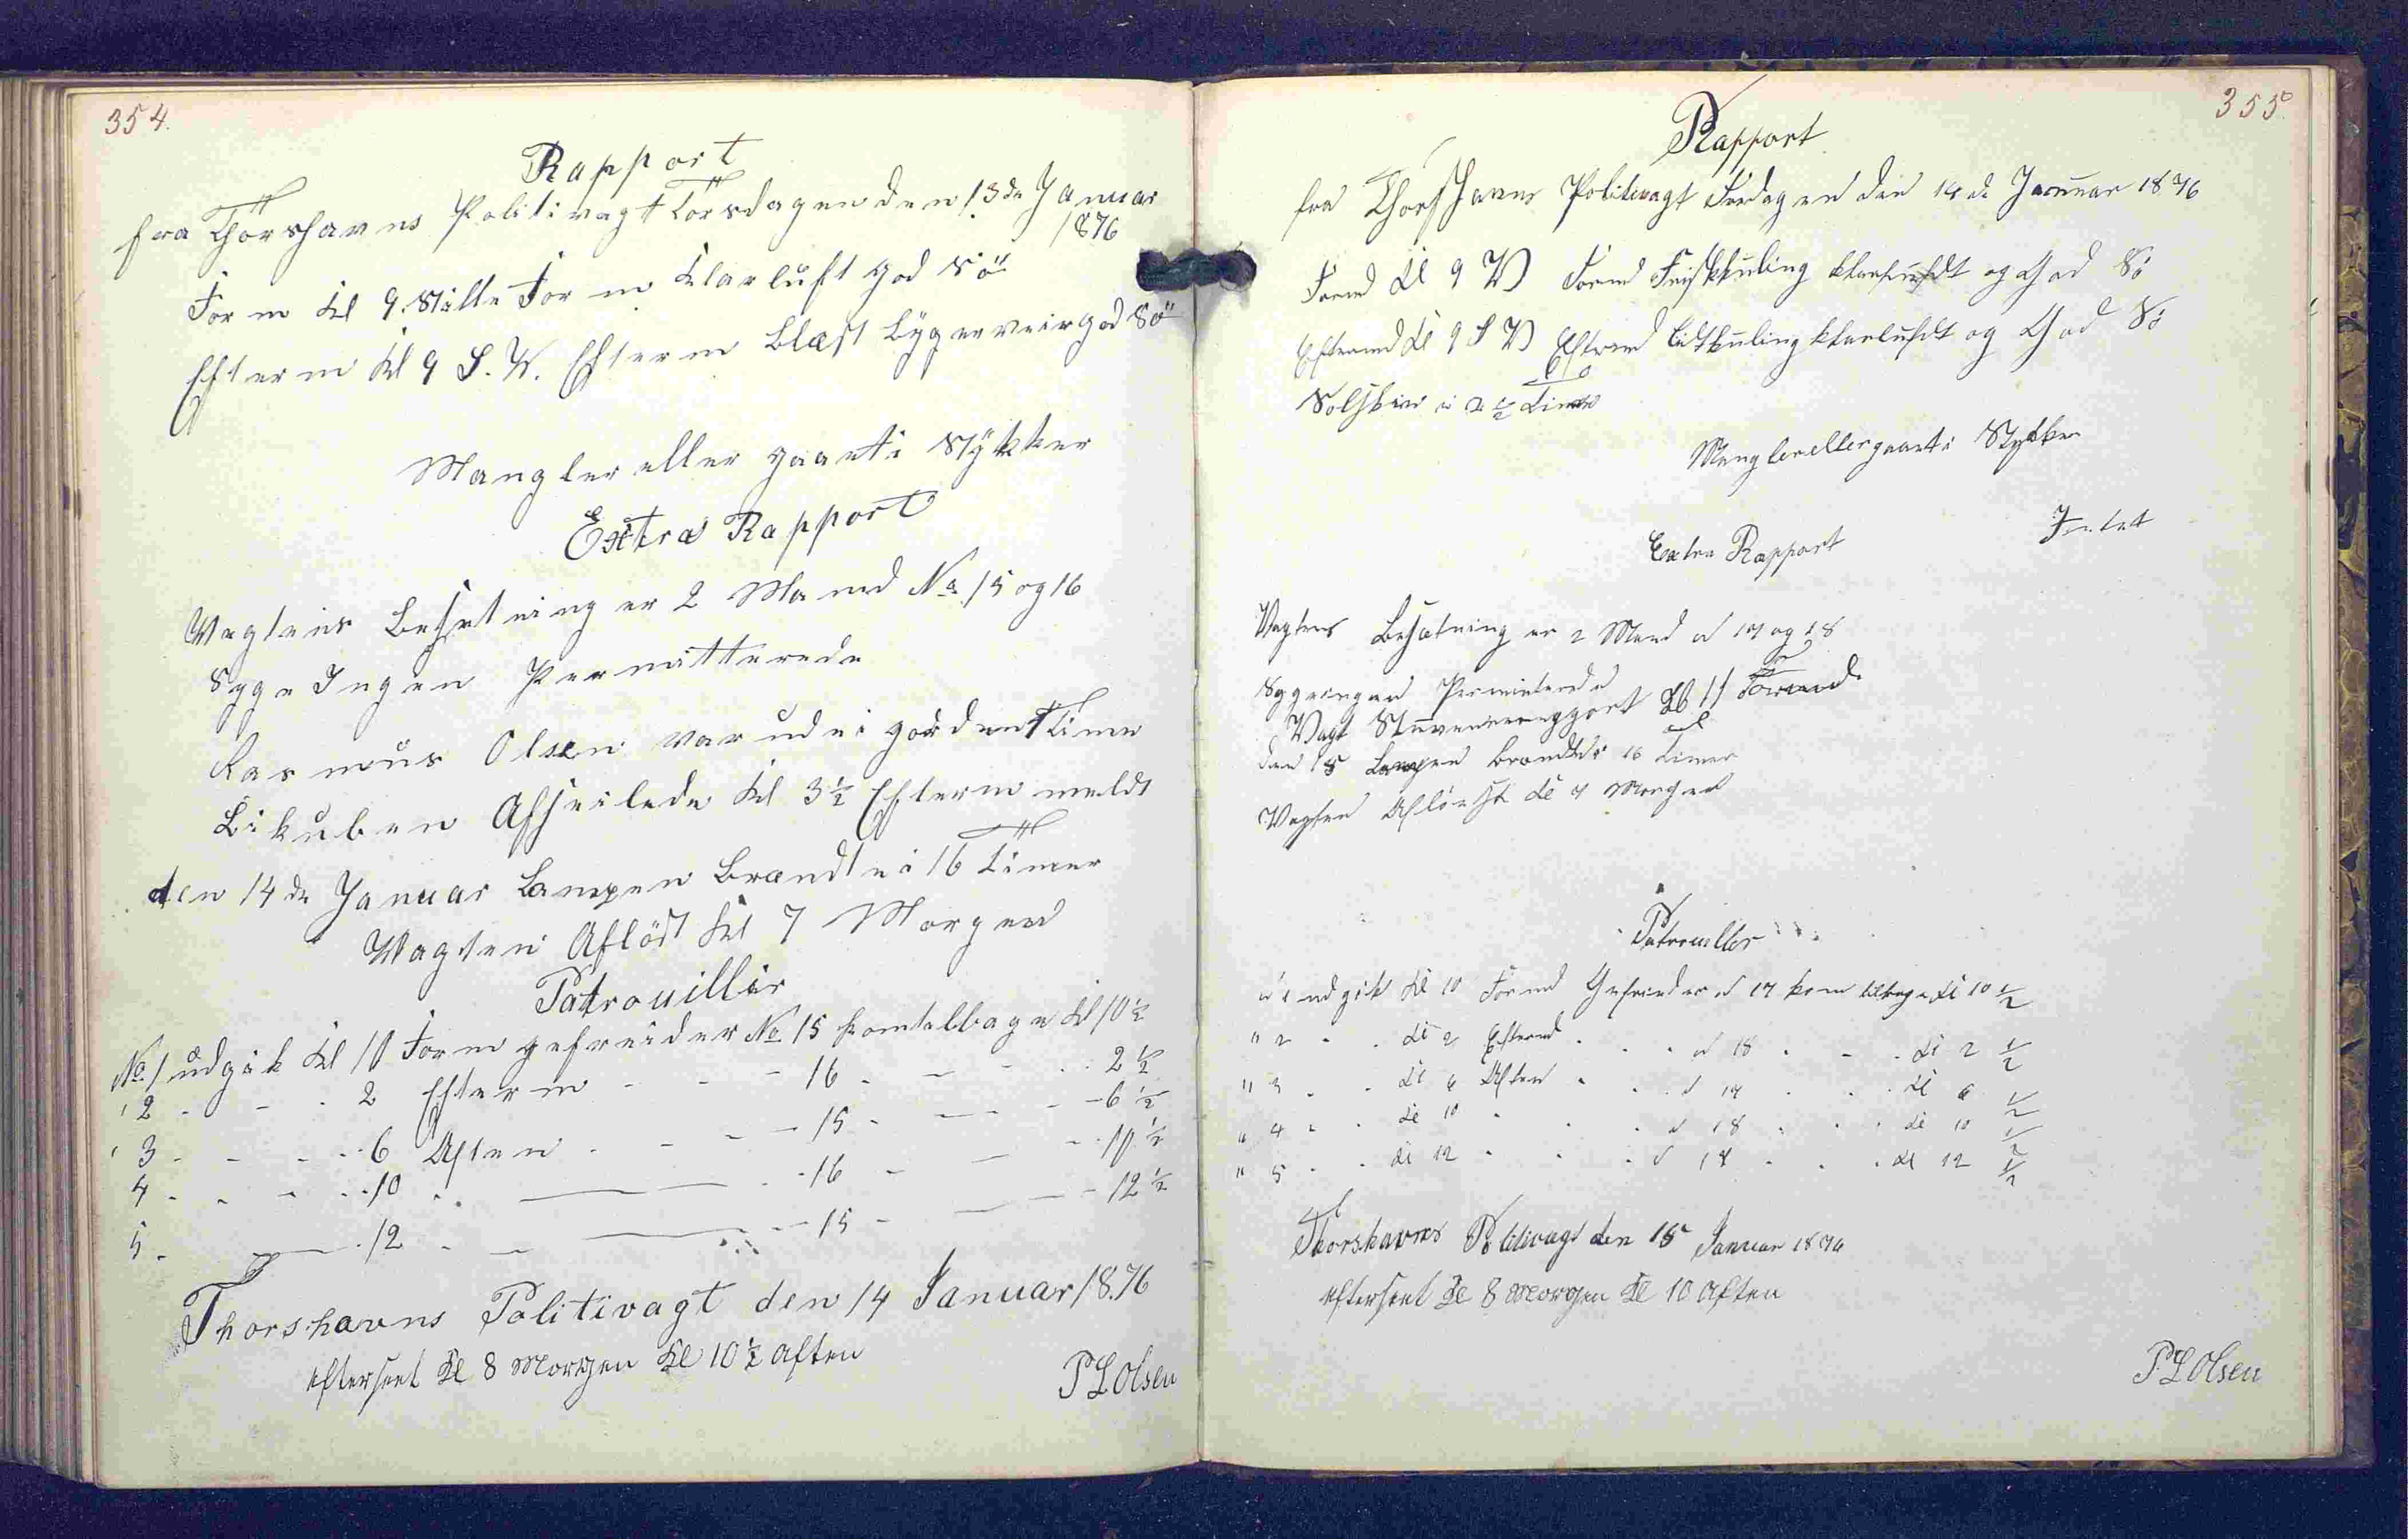 354.
Rapport
fra Thorshavns Politivagt Torsdagen den 13de Januar
1876
Form Kl 9 Stille Form Klarluft god Sö
Efterm Kl 9 S.V. Efterm Blæst Bygerveir god Sö
Mangler eller gaaet i Stykker
Extra Rapport
Vagtens Besetning er 2 Mand No 15 og 16
Syge Ingen Permitterede
Rasmus Olsen var ude i 1 Time
Bikuben Afseilede Kl 3½ Efterm meldt
den 14de Januar Lampen Brændte i 16 Timer
Vagten Aflöst Kl 7 Morgen
Patrouillir
No 1 udgik Kl 10 Form gefreider No 15 kom tilbage Kl 10½
" 2 - - - 2 Efterm - - - 16 - - - 2½
" 3 - - - 6 Aften - - - 15 - - - 6½
4 - - - 10 - - 16 - - 10½
5 - - 12 - - - 15 - - 12½
Thorshavns Politivagt den 14 Januar 1876
efterseet Kl 8 Morgen Kl 10½ Aften
P L Olsen
355
Rapport
fra Thorshavns Politivagt Fredagen den 14de Januar 1876
Formd Kl 9 V Formd Friskkuling klarluft og God Sö
Eftermd Kl 9 S V Eftermd Lidtkuling klarluft og God Sö
Solskin i 2½ Timer
Mangler eller gaaet i Stykker
Intet
Extra Rapport
Vagtens Besætning er 2 Mand N 17 og 18
Syge ingen Permitterede
Vagt Kl 11 Formd
den 15 Lampen Brændte i 16 Timer
Vagten Aflöst Kl 7 Morgen
Patrouiller
N 1 udgik Kl 10 Formd Gefreider N 17 kom tilbage Kl 10½
" 2 - - Kl 2 Eftermd - - N 18 - - - Kl 2½
" 3 - - Kl 6 Aften - - N 17 - - Kl 6½
" 4 - - Kl 10 - - N 18 - - - Kl 10½
" 5 - - Kl 12 - - - N 17 - - - Kl 12½
Thorshavns Politivagt den 15 Januar 1876
efterseet Kl 8 Morgen Kl 10 Aften
P L Olsen